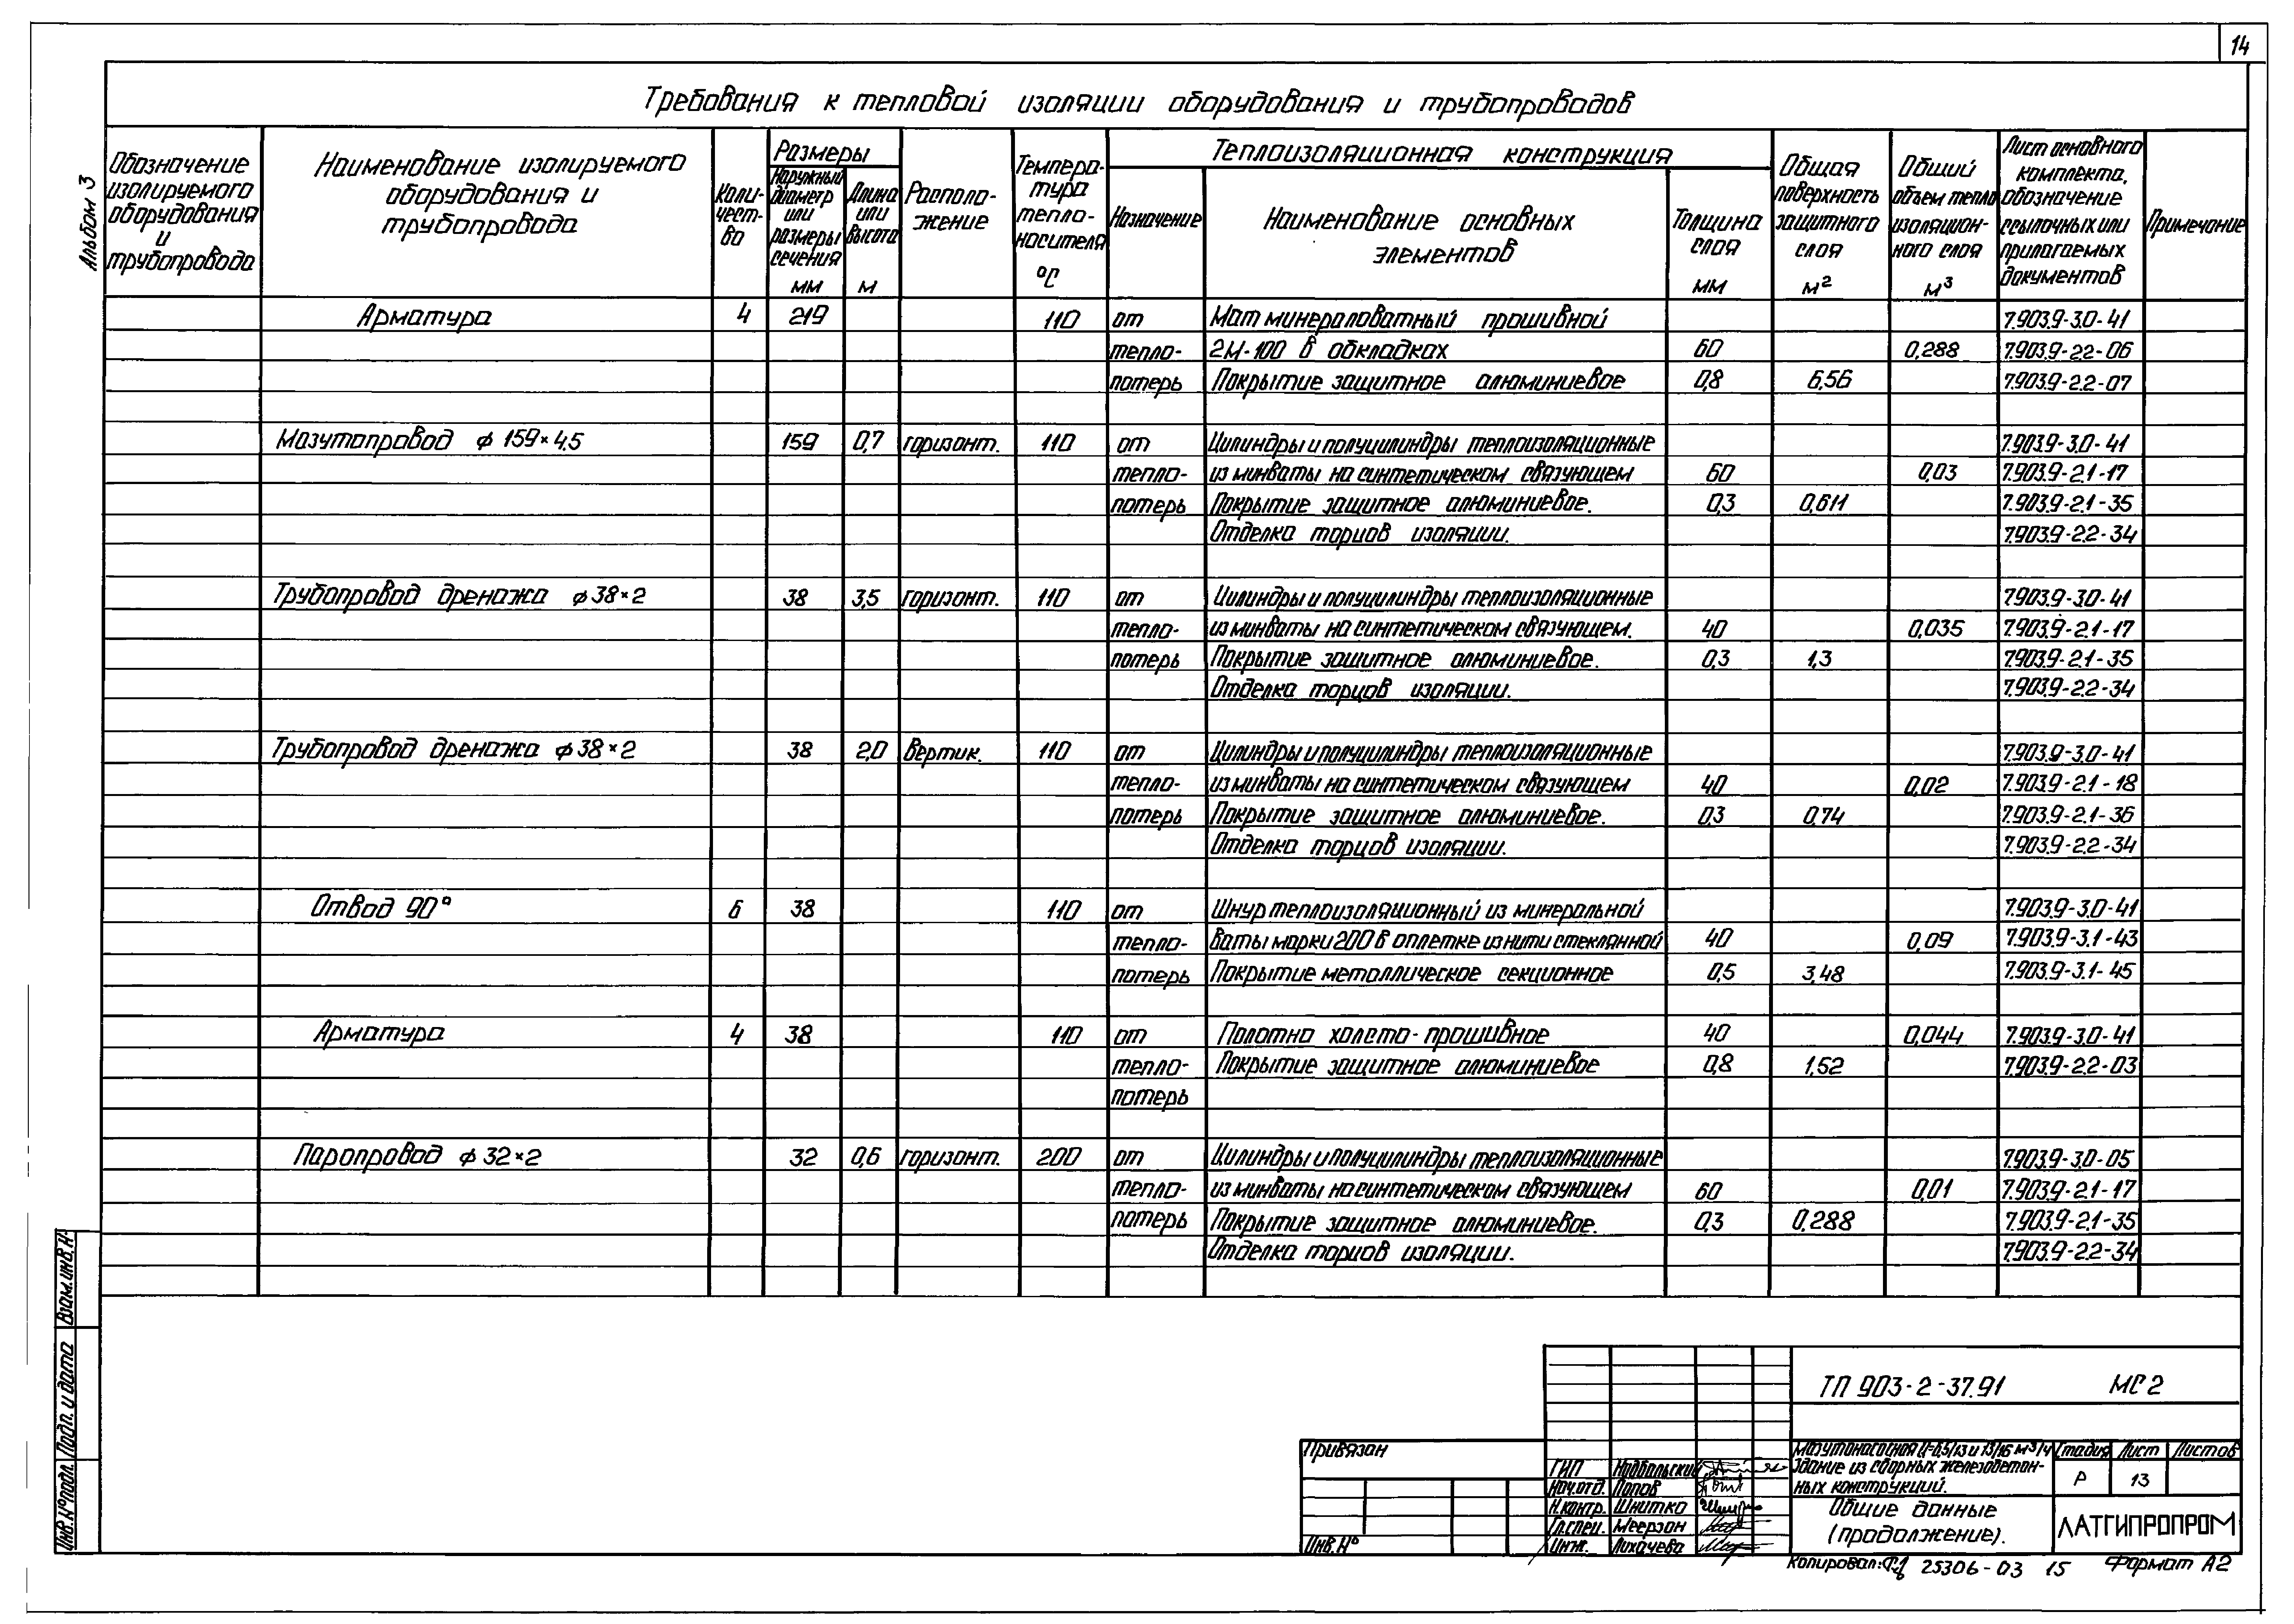 14
Альбом 3
Требования к тепловой изоляции оборудования и трубопроводов
Обозначение изолируемого оборудования и трубопровода
Наименование изолируемого оборудования и трубопровода
Коли-чест-во
Размеры
Наружный диаметр или размеры сечения мм
Длина или высота м
Располо-жение
Темпера-тура тепло-носителя °С
Теплоизоляционная конструкция
Назначение
Наименование основных элементов
Толщина слоя мм
Общая поверхность защитного слоя м²
Общий объем тепло изоляцион-ного слоя м³
Лист основного комплекта, обозначение ссылочных или прилагаемых документов
Примечание
Арматура 4 219 110 от Мат минераловатный прошивной 7.903.9-3.0-41
тепло- 2М-100 в обкладках 60 0,288 7.903.9-22-06
потерь Покрытие защитное алюминиевое 0,8 6,56 7.903.9-2.2-07
Мазутопровод ф 159×4,5 159 0,7 горизонт. 110 от Цилиндры и полуцилиндры теплоизоляционные 7.903.9-3.0-41
тепло- из минваты на синтетическом связующем 60 0,03 7.903.9-2.1-17
потерь Покрытие защитное алюминиевое. 0,3 0,611 7.903.9-2.1-35
Отделка торцов изоляции. 7.903.9-2.2-34
Трубопровод дренажа ф38×2 38 3,5 горизонт. 110 от Цилиндры и полуцилиндры теплоизоляционные 7.903.9-3.0-41
тепло- из минваты на синтетическом связующем. 40 0,035 7.903.9-2.1-17
потерь Покрытие защитное алюминиевое. 0,3 1,3 7.903.9-2.1-35
Отделка торцов изоляции. 7.903.9-2.2-34
Трубопровод дренажа ф38×2 38 2,0 Вертик. 110 от Цилиндры и полуцилиндры теплоизоляционные 7.903.9-3.0-41
тепло- из минваты на синтетическом связующем 40 0,02 7.903.9-2.1-18
потерь Покрытие защитное алюминиевое. 0,3 0,74 7.903.9-2.1-36
Отделка торцов изоляции. 7.903.9-2.2-34
Отвод 90° 6 38 110 от Шнур теплоизоляционный из минеральной 7.903.9-3.0-41
тепло- ваты марки 200 в оплетке из нити стеклянной 40 0,09 7.903.9-3.1-43
потерь Покрытие металлическое секционное 0,5 3,48 7.903.9-3.1-45
Арматура 4 38 110 от Полотно холсто-прошивное 40 0,044 7.903.9-3.0-41
тепло- Покрытие защитное алюминиевое 0,8 1,52 7.903.9-2.2-03
потерь
Паропровод ф 32×2 32 0,6 горизонт. 200 от Цилиндры и полуцилиндры теплоизоляционные 7.903.9-3.0-05
тепло- из минваты на синтетическом связующем 60 0,01 7.903.9-2.1-17
потерь Покрытие защитное алюминиевое. 0,3 0,288 7.903.9-2.1-35
Отделка торцов изоляции. 7.903.9-2.2-34
Взам. инв. №
Подп. и дата
Инв. № подл.
ТП 903-2-37.91 МС2
Привязан
Инв. №
ГИП Надбальский
Нач.отд. Попов
Н.контр. Шнитко
Гл.спец. Меерзон
Инж. Лихачева
Мазутонасосная Q=6,5/13 и 13/16 м³/ч
Здание из сборных железобетон-
ных конструкций.
Стадия Лист Листов
Р 13
Общие данные
(продолжение).
ЛАТГИПРОПРОМ
Копировал: 25306-03 15 Формат А2